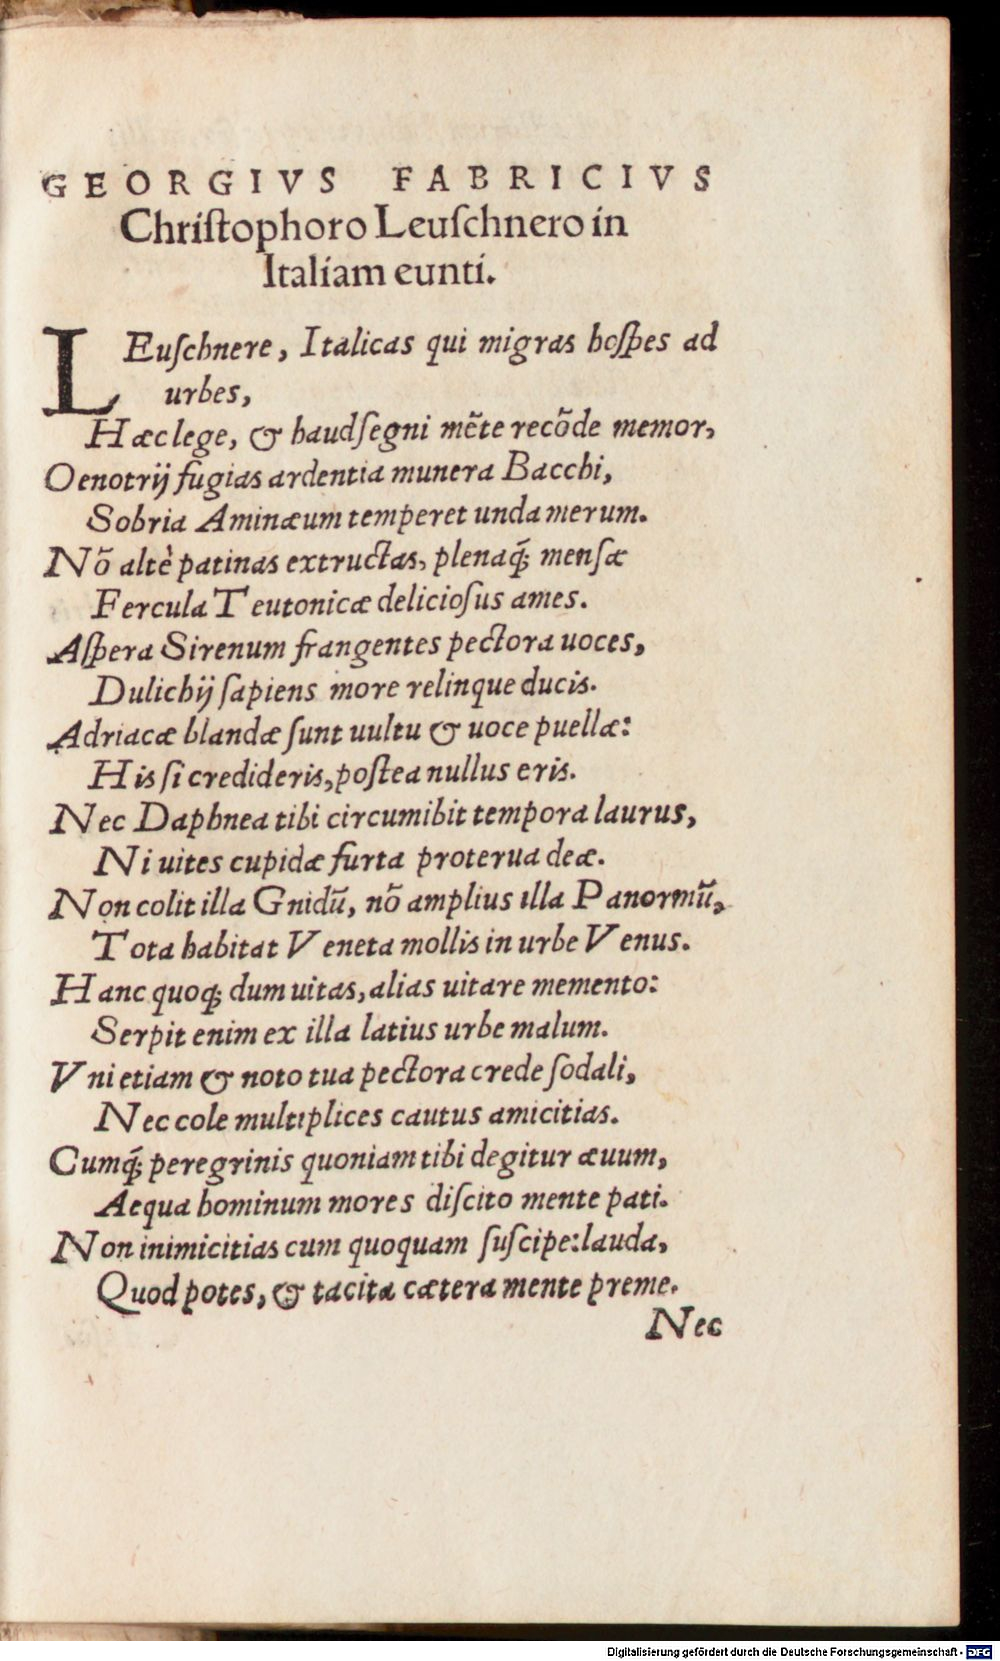 GEORGIVS FABRICIVS
Chriſtophoro Leuſchnero in
Italiam eunti.
LEuſchnere, Italicas qui migras hoſpes ad
urbes,
Hæc lege, & haud ſegni mẽte recõde memor,
Oenotrij fugias ardentia munera Bacchi,
Sobria Aminæum temperet unda merum.
Nõ altè patinas extructas, plenaq́; menſæ
Fercula Teutonicæ delicioſus ames.
Aſpera Sirenum frangentes pectora uoces,
Dulichij ſapiens more relinque ducis.
Adriacæ blandæ ſunt uultu & uoce puellæ:
His ſi credideris, poſtea nullus eris.
Nec Daphnea tibi circumibit tempora laurus,
Ni uites cupidæ furta proterua deæ.
Non colit illa Gnidũ, nõ amplius illa Panormũ,
Tota habitat Veneta mollis in urbe Venus.
Hanc quoq; dum uitas, alias uitare memento:
Serpit enim ex illa latius urbe malum.
Vni etiam & noto tua pectora crede ſodali,
Nec cole multiplices cautus amicitias.
Cumq́; peregrinis quoniam tibi degitur æuum,
Aequa hominum mores diſcito mente pati.
Non inimicitias cum quoquam ſuſcipe: lauda,
Quod potes, & tacita cætera mente preme.
Nec
Digitalisierung gefördert durch die Deutsche Forschungsgemeinschaft - DFG